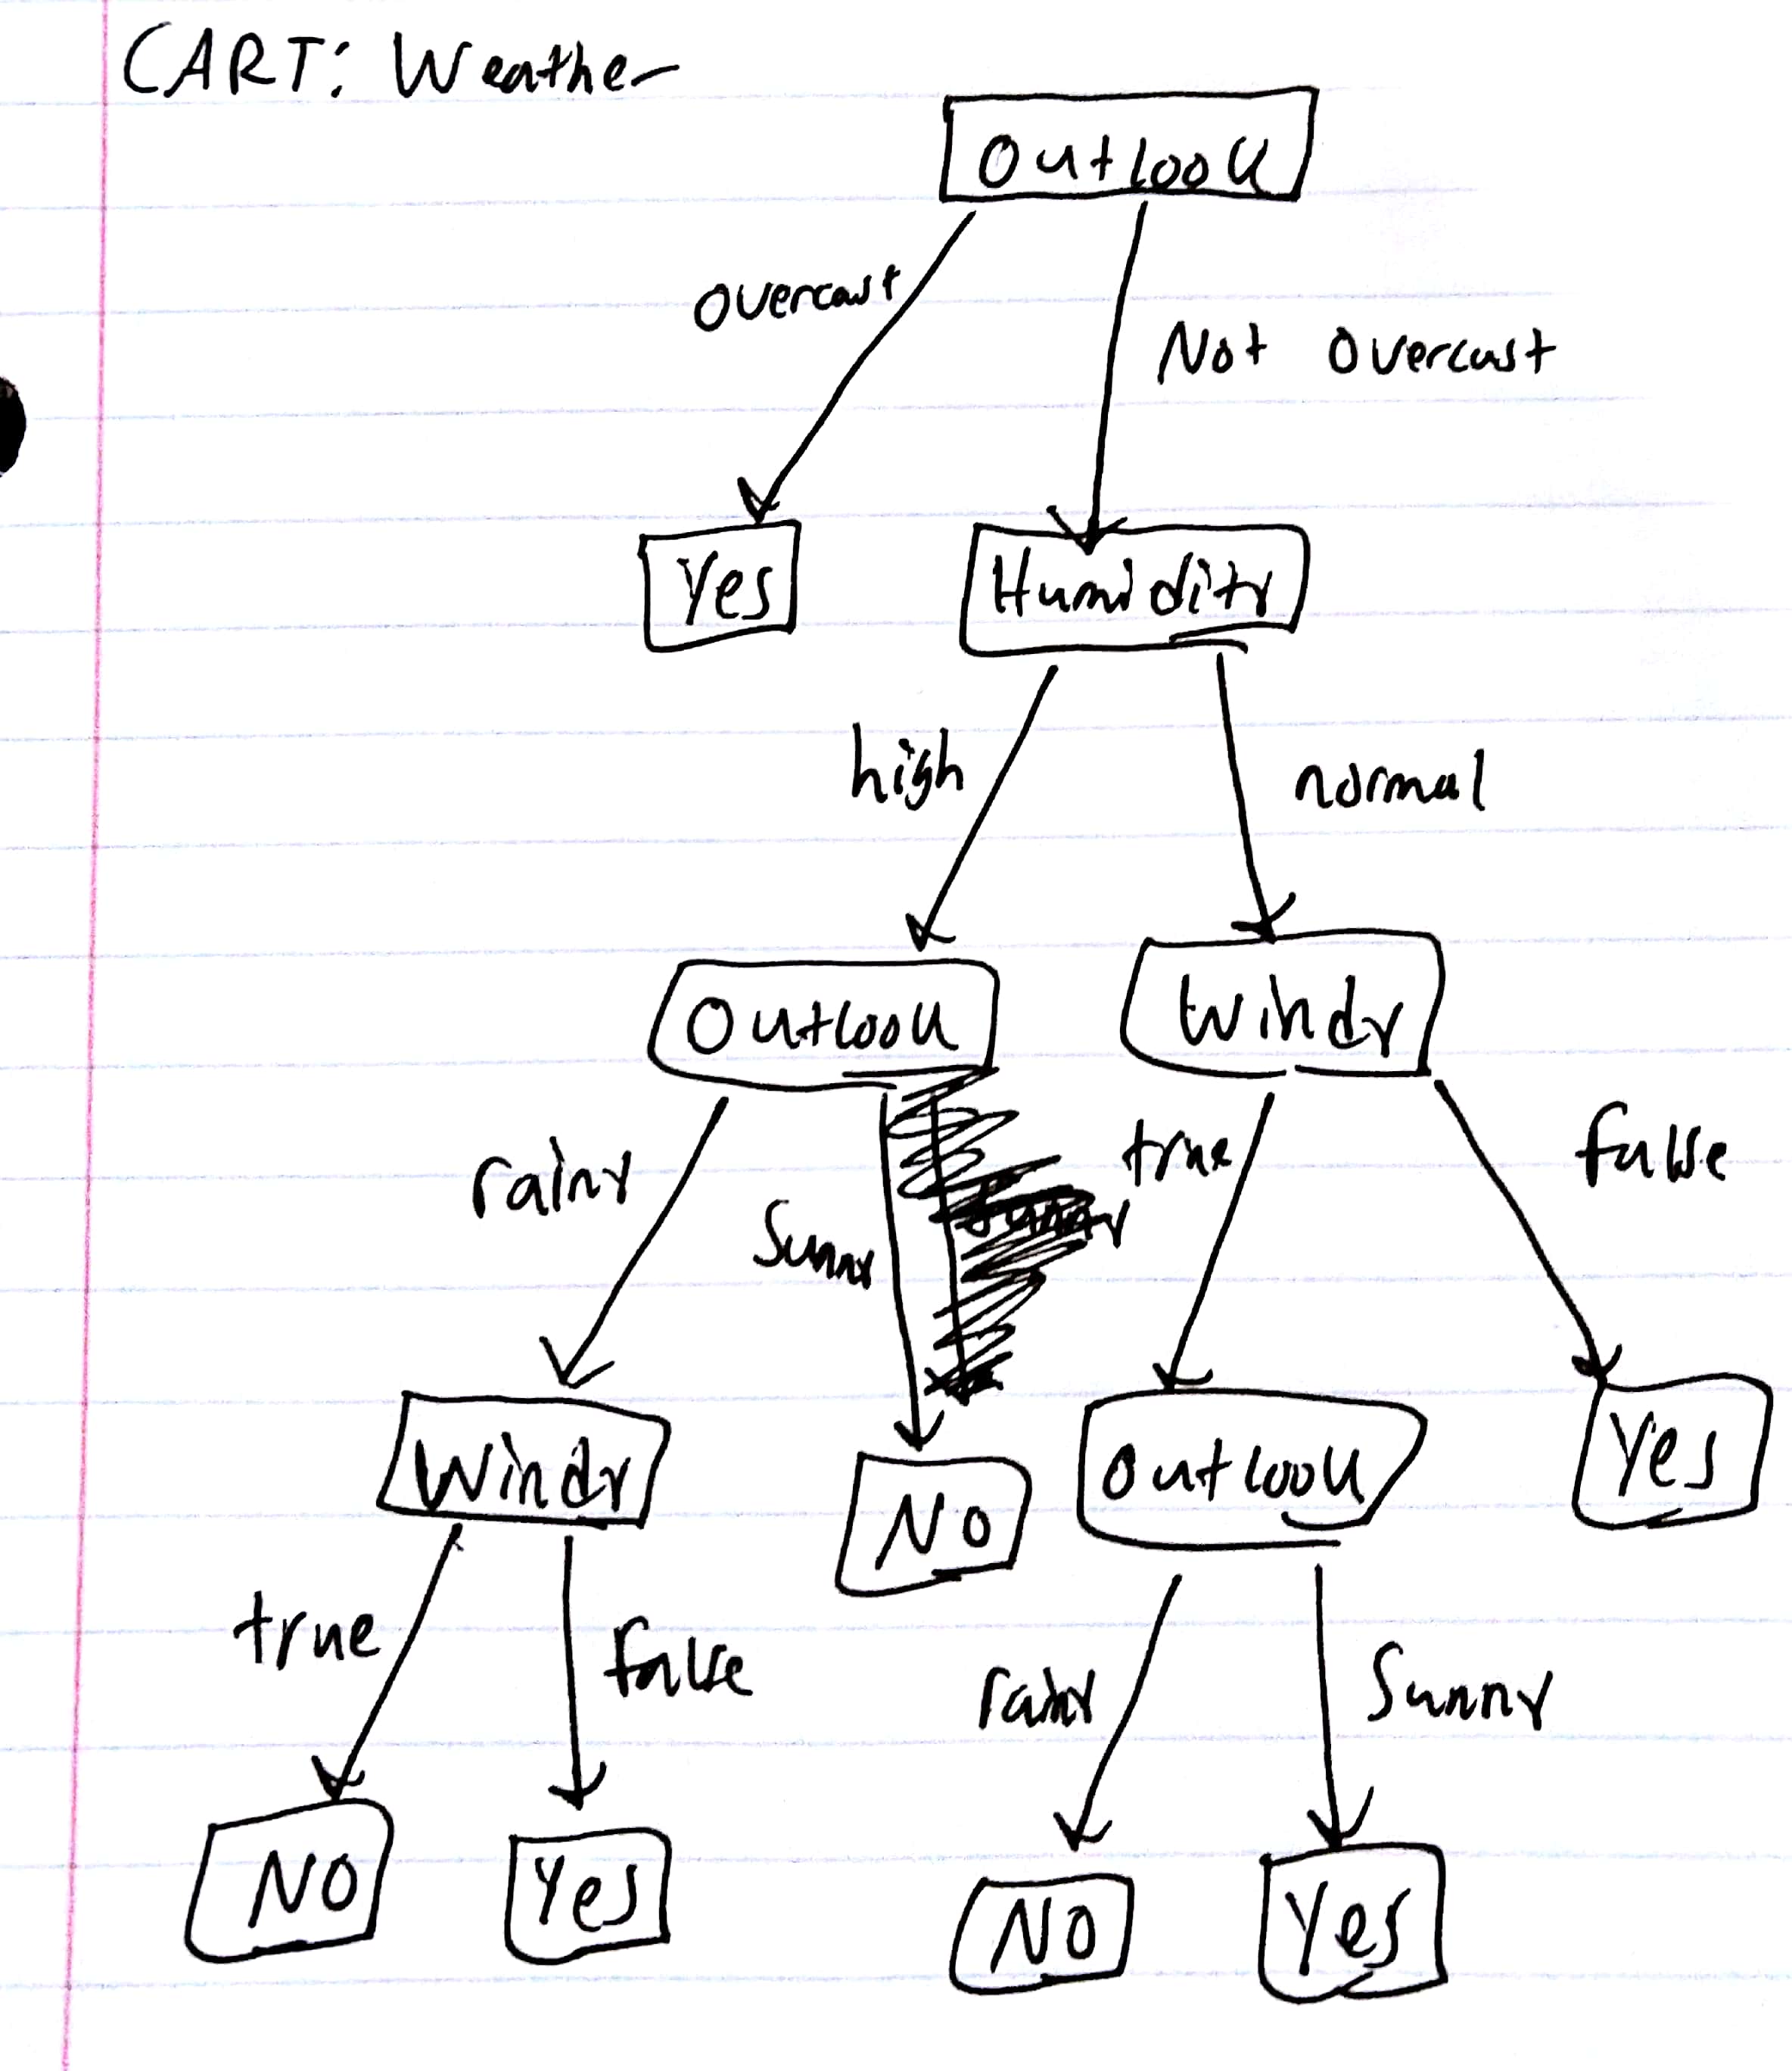 CART: Weather
Outlook
overcast
Not overcast
Yes
Humidity
high
normal
Outlook
Windy
rainy
Sunny
Sunny
true
false
Windy
No
Outlook
Yes
true
false
rainy
Sunny
No
Yes
No
Yes